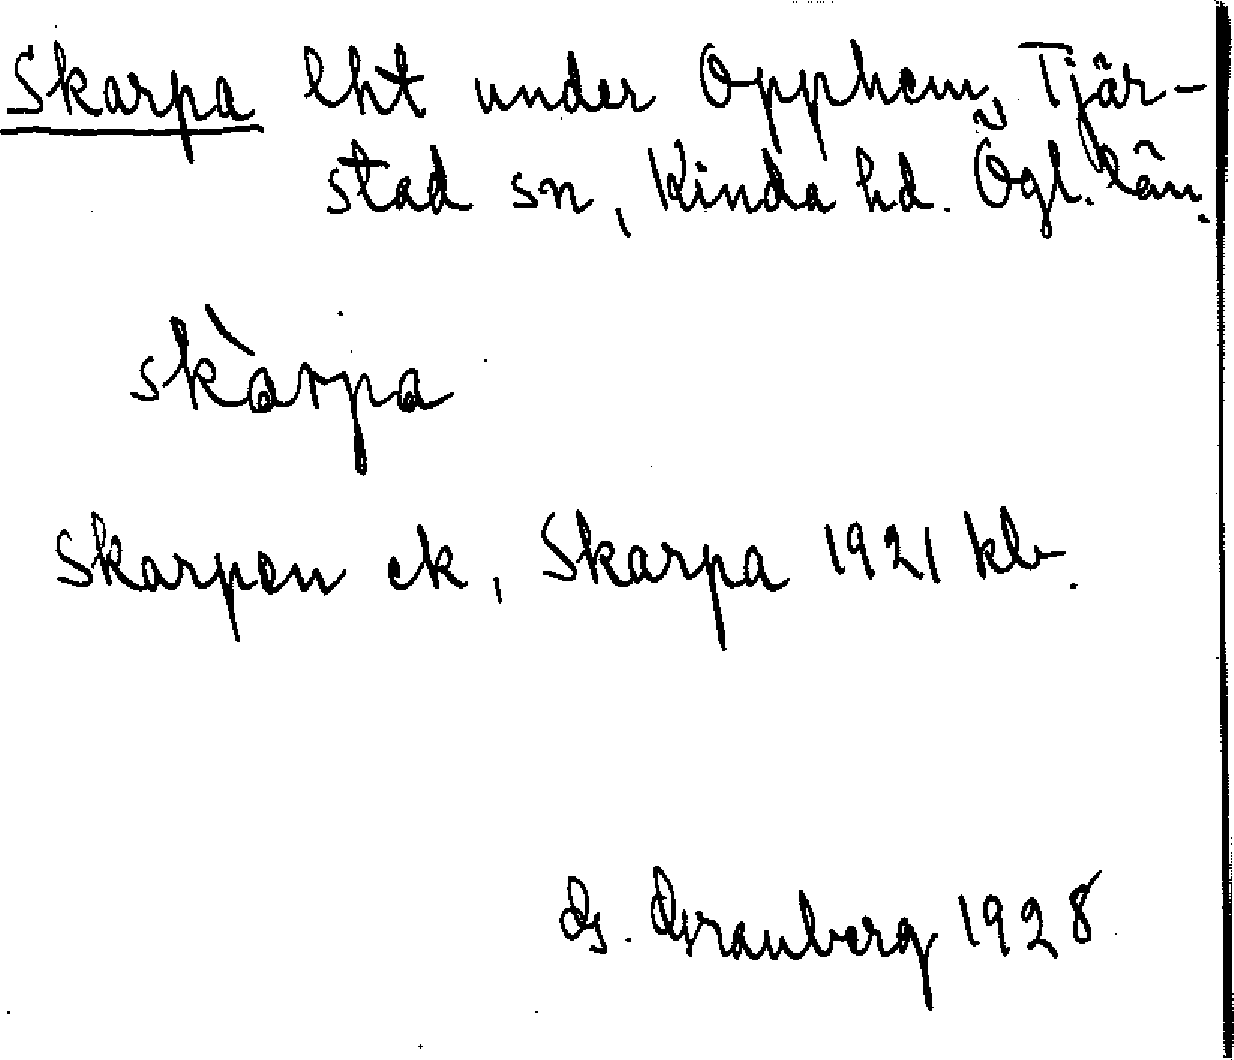 Skarpa lht under Opphem, Tjär-
stad sn, Kinda hd. Ögl. län.
skàrpa
Skarpen ek, Skarpa 1921 kb.
G. Granberg 1928